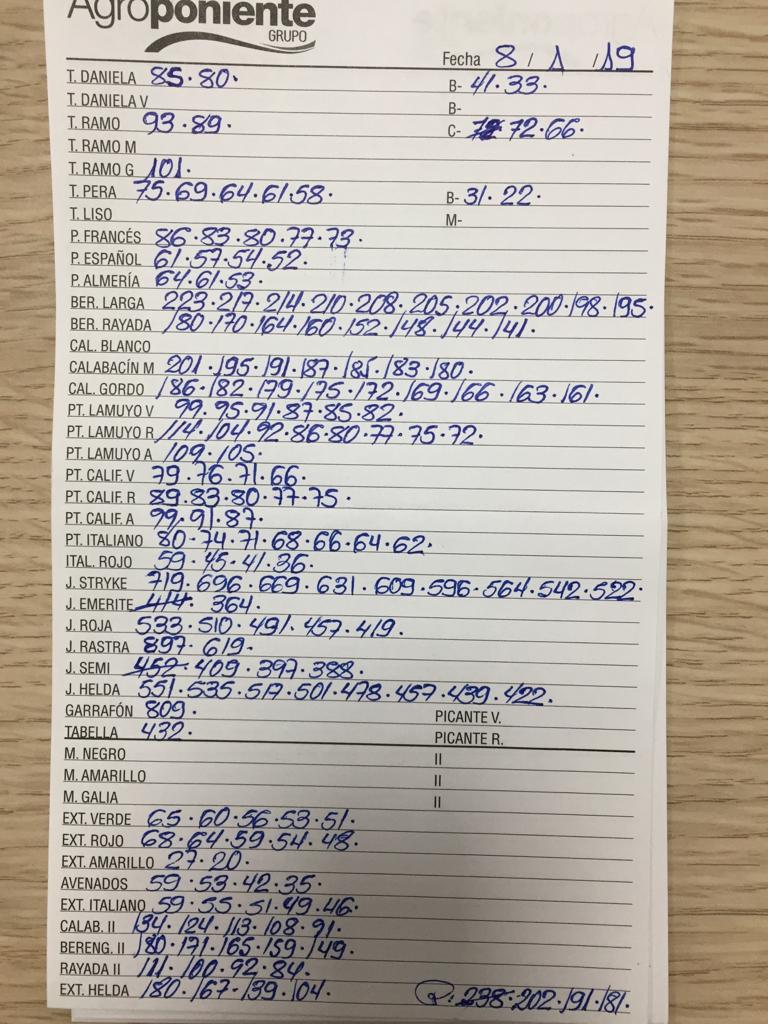 Agroponiente
GRUPO
Fecha 8 / 1 / 19
T. DANIELA 85.80. B- 41.33.
T. DANIELA V B-
T. RAMO 93.89. C- 72.66.
T. RAMO M
T. RAMO G 101.
T. PERA 75.69.64.61.58. B- 31.22.
T. LISO M-
P. FRANCÉS 86.83.80.77.73.
P. ESPAÑOL 61.57.54.52.
P. ALMERÍA 64.61.53.
BER. LARGA 223.217.214.210.208.205.202.200.198.195.
BER. RAYADA 180.170.164.160.152.148.144.141.
CAL. BLANCO
CALABACÍN M 201.195.191.187.185.183.180.
CAL. GORDO 186.182.179.175.172.169.166.163.161.
PT. LAMUYO V 99.95.91.87.85.82.
PT. LAMUYO R 114.104.92.86.80.77.75.72.
PT. LAMUYO A 109.105.
PT. CALIF. V 79.76.71.66.
PT. CALIF. R 89.83.80.77.75.
PT. CALIF. A 99.91.87.
PT. ITALIANO 80.74.71.68.66.64.62.
ITAL. ROJO 59.45.41.36.
J. STRYKE 719.696.669.631.609.596.564.542.522.
J. EMERITE 414. 364.
J. ROJA 533.510.491.457.419.
J. RASTRA 897.619.
J. SEMI 452.409.397.388.
J. HELDA 551.535.517.501.478.457.439.422.
GARRAFÓN 809. PICANTE V.
TABELLA 432. PICANTE R.
M. NEGRO II
M. AMARILLO II
M. GALIA II
EXT. VERDE 65.60.56.53.51.
EXT. ROJO 68.64.59.54.48.
EXT. AMARILLO 27.20.
AVENADOS 59.53.42.35.
EXT. ITALIANO 59.55.51.49.46.
CALAB. II 134.124.113.108.91.
BERENG. II 180.171.165.159.149.
RAYADA II 111.100.92.84.
EXT. HELDA 180.167.139.104. 238.202.191.181.